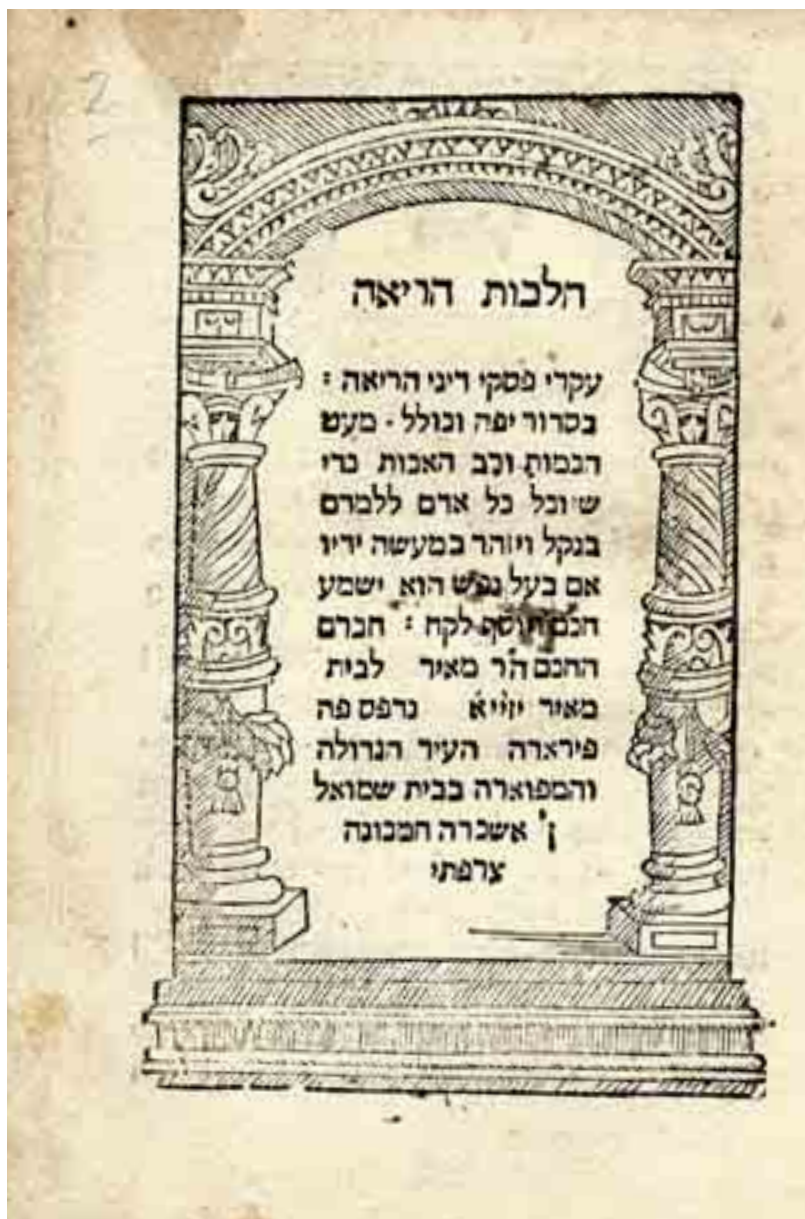 2
הלכות הריאה
עקרי פסקי דיני הריאה :
בסדור יפה וכולל . מעט
הכמות ורב האכות כדי
שיוכל כל אדם ללמדם
בנקל ויזהר במעשה ידיו
אם בעל נפש הוא ישמע
חכם ויוסף לקח : חברם
החכם הר מאיר לבית
מאיר יזייא נדפס פה
פירארה העיר הגדולה
והמפוארה בבית שמואל
ן' אשכרה המכונה
צרפתי